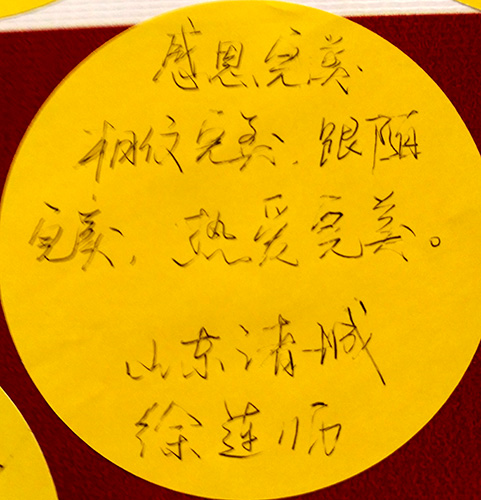 感恩完美
相信完美,跟随
完美,热爱完美。
山东诸城
徐莲